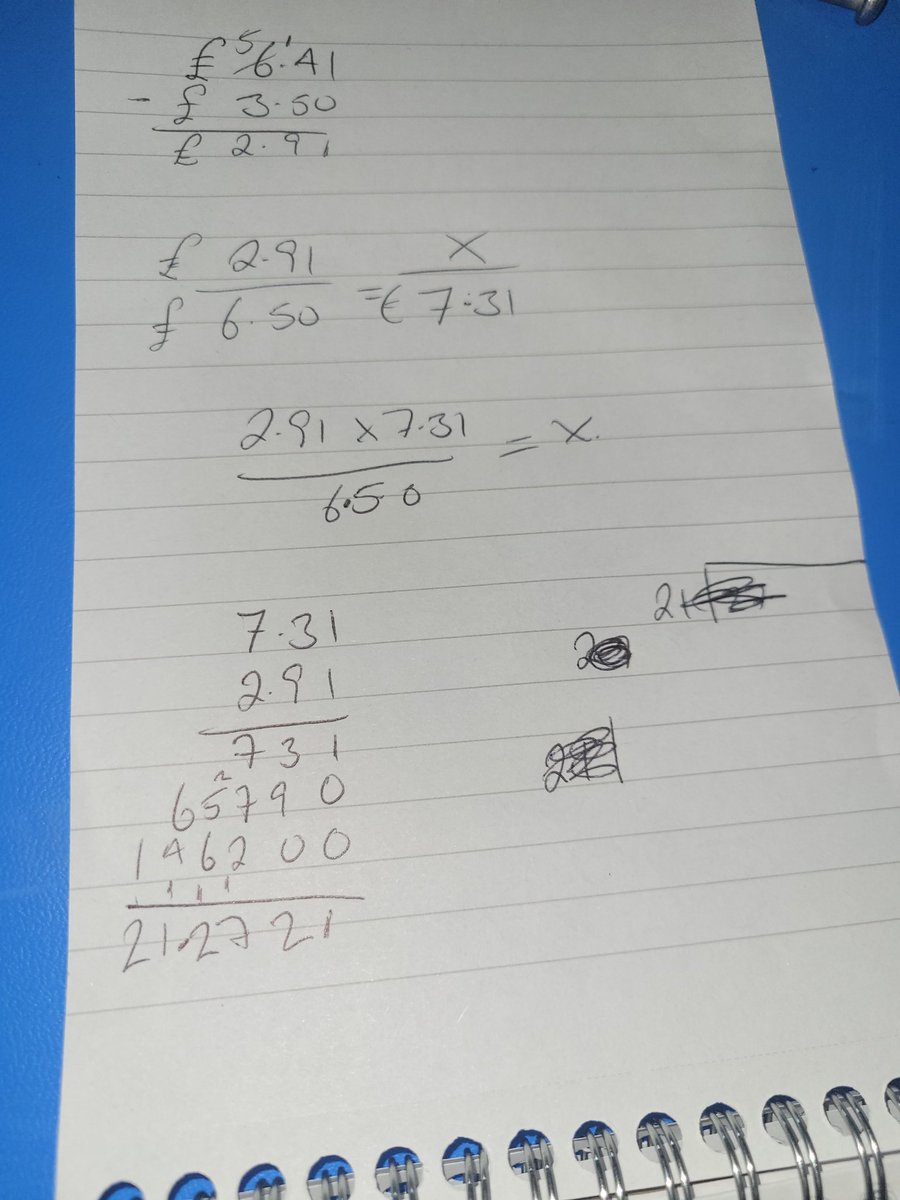 5 1
£ 6.41
- £ 3.50
£ 2.91
£ 2.91 = X
£ 6.50 € 7.31
2.91 x 7.31 = X.
6.50
7.31
2.91
731
2
65790
146200
1 1 1 1
21.2721
21
2
2